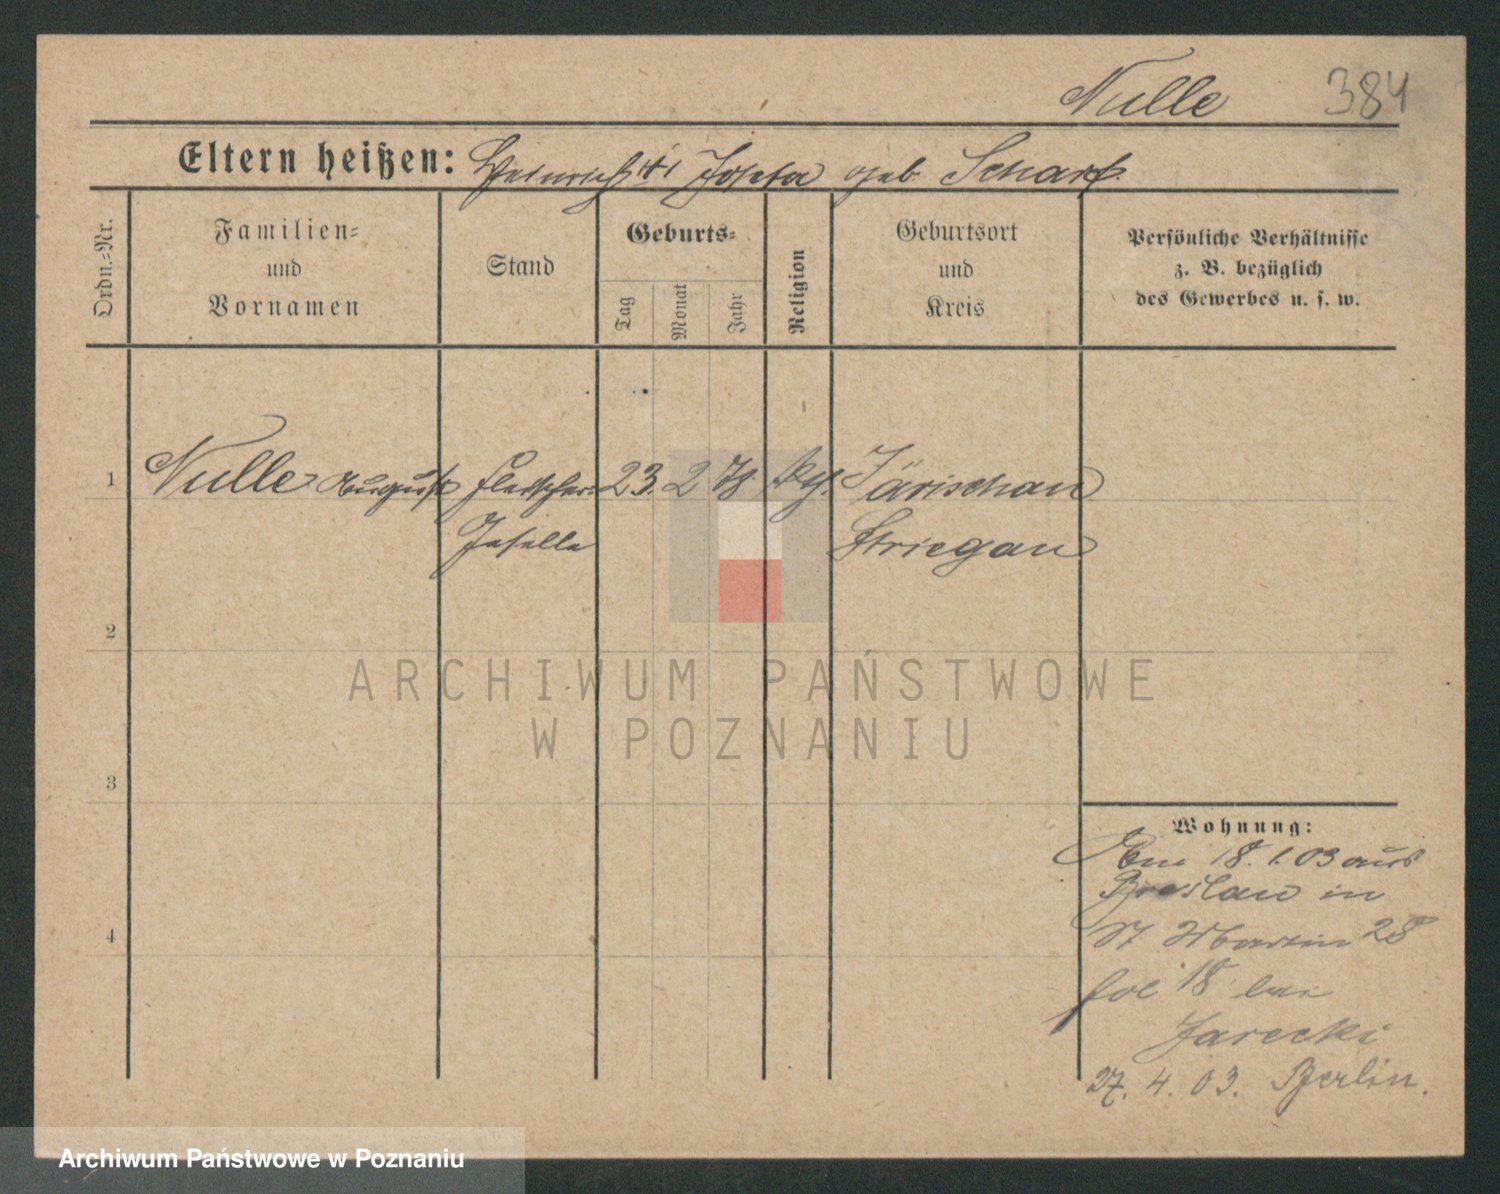 Nulle 384
Eltern heißen: Heinrich u Josefa geb. Scharf.
Ordn.-Nr.
Familien-
und
Vornamen
Stand
Geburts-
Tag
Monat
Jahr
Religion
Geburtsort
und
Kreis
Persönliche Verhältnisse
z. B. bezüglich
des Gewerbes u. s. w.
1 Nulle August Fleischer 23. 2 78 Järischau
Geselle Striegau
2
3
4
Wohnung:
18.1.03 aus
Breslau in
St Martin 28
fol 18 bei
Jarecki
27. 4. 03. Berlin.
ARCHIWUM PAŃSTWOWE
W POZNANIU
Archiwum Państwowe w Poznaniu